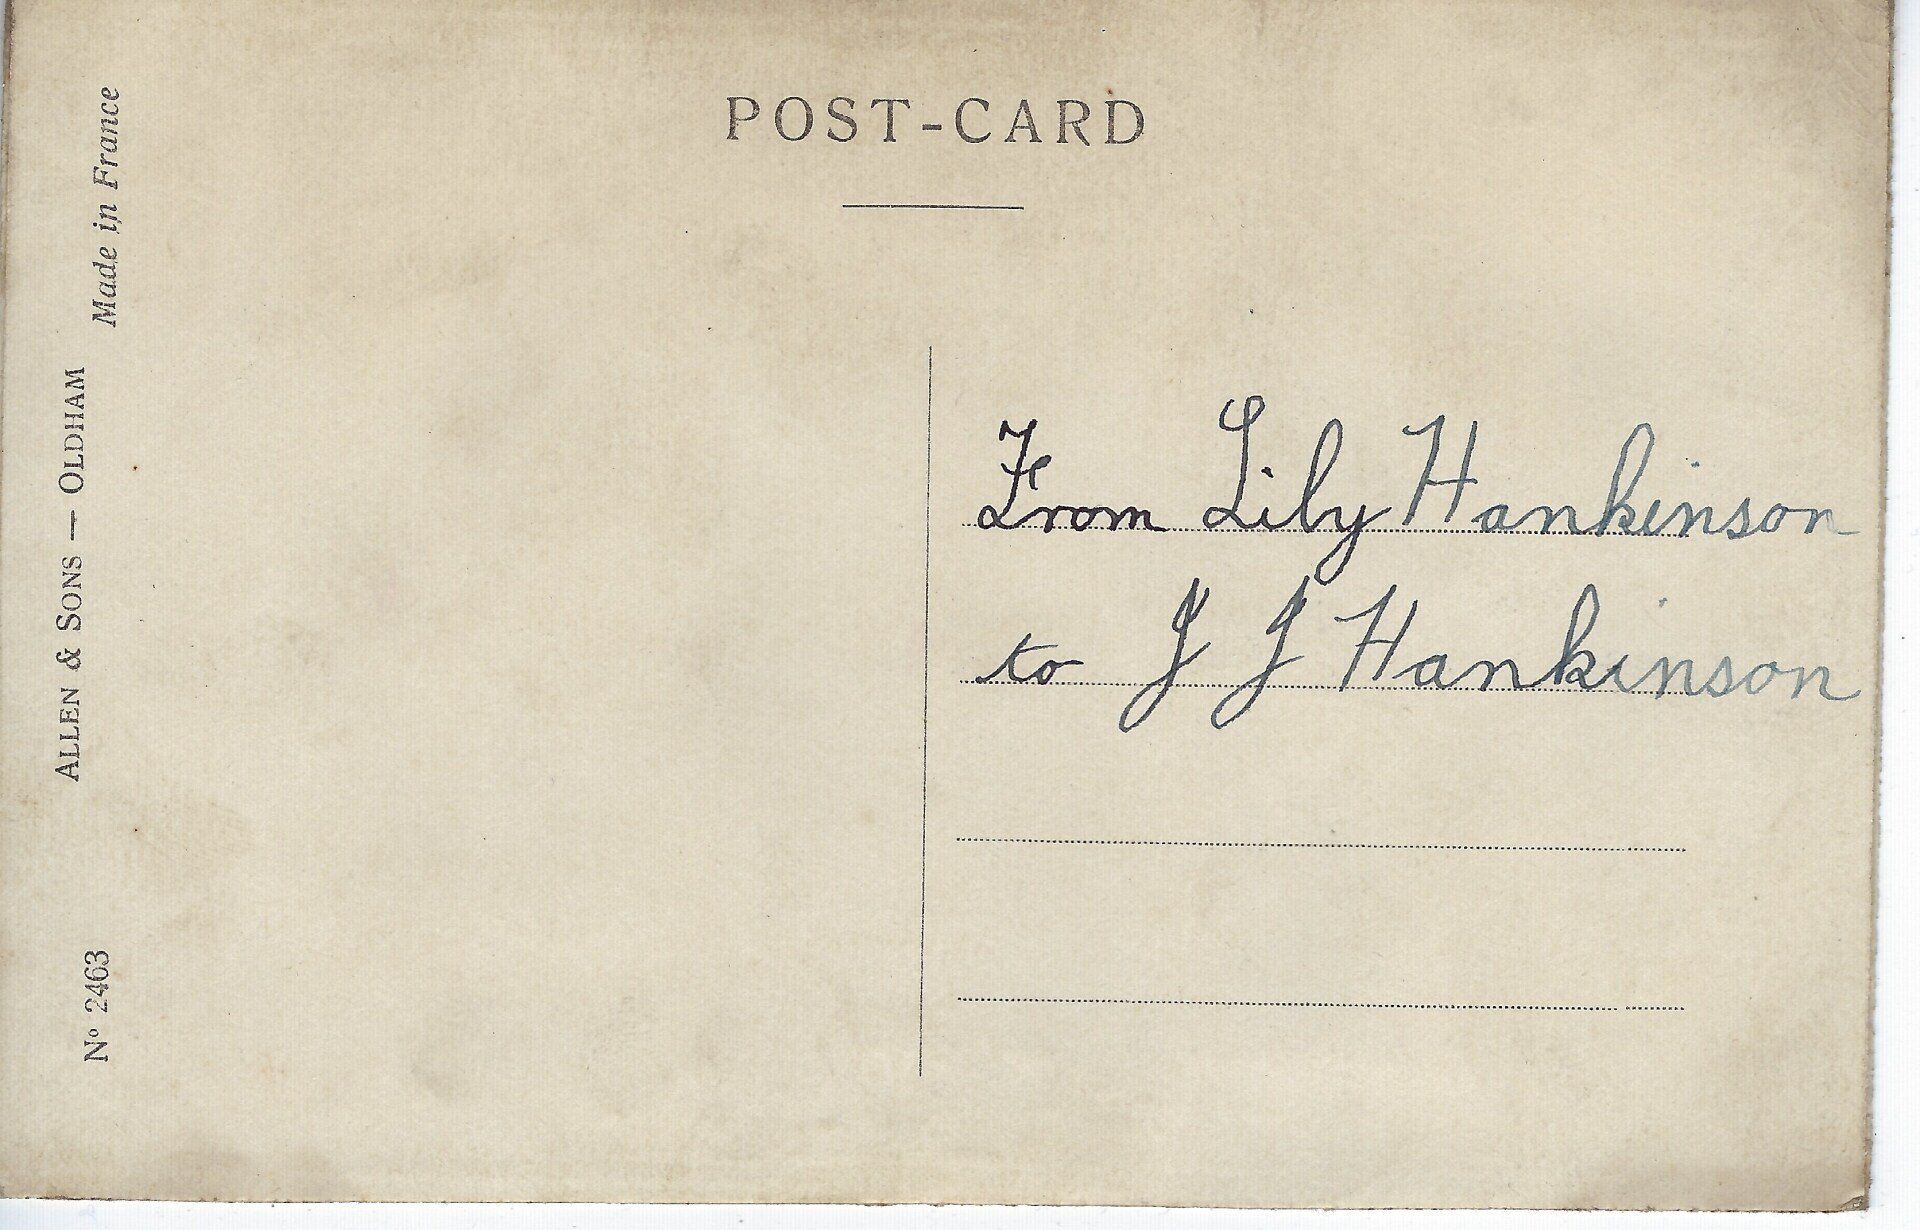 POST-CARD
Made in France
ALLEN & SONS — OLDHAM
Nº 2463
From Lily Hankinson
to J J Hankinson